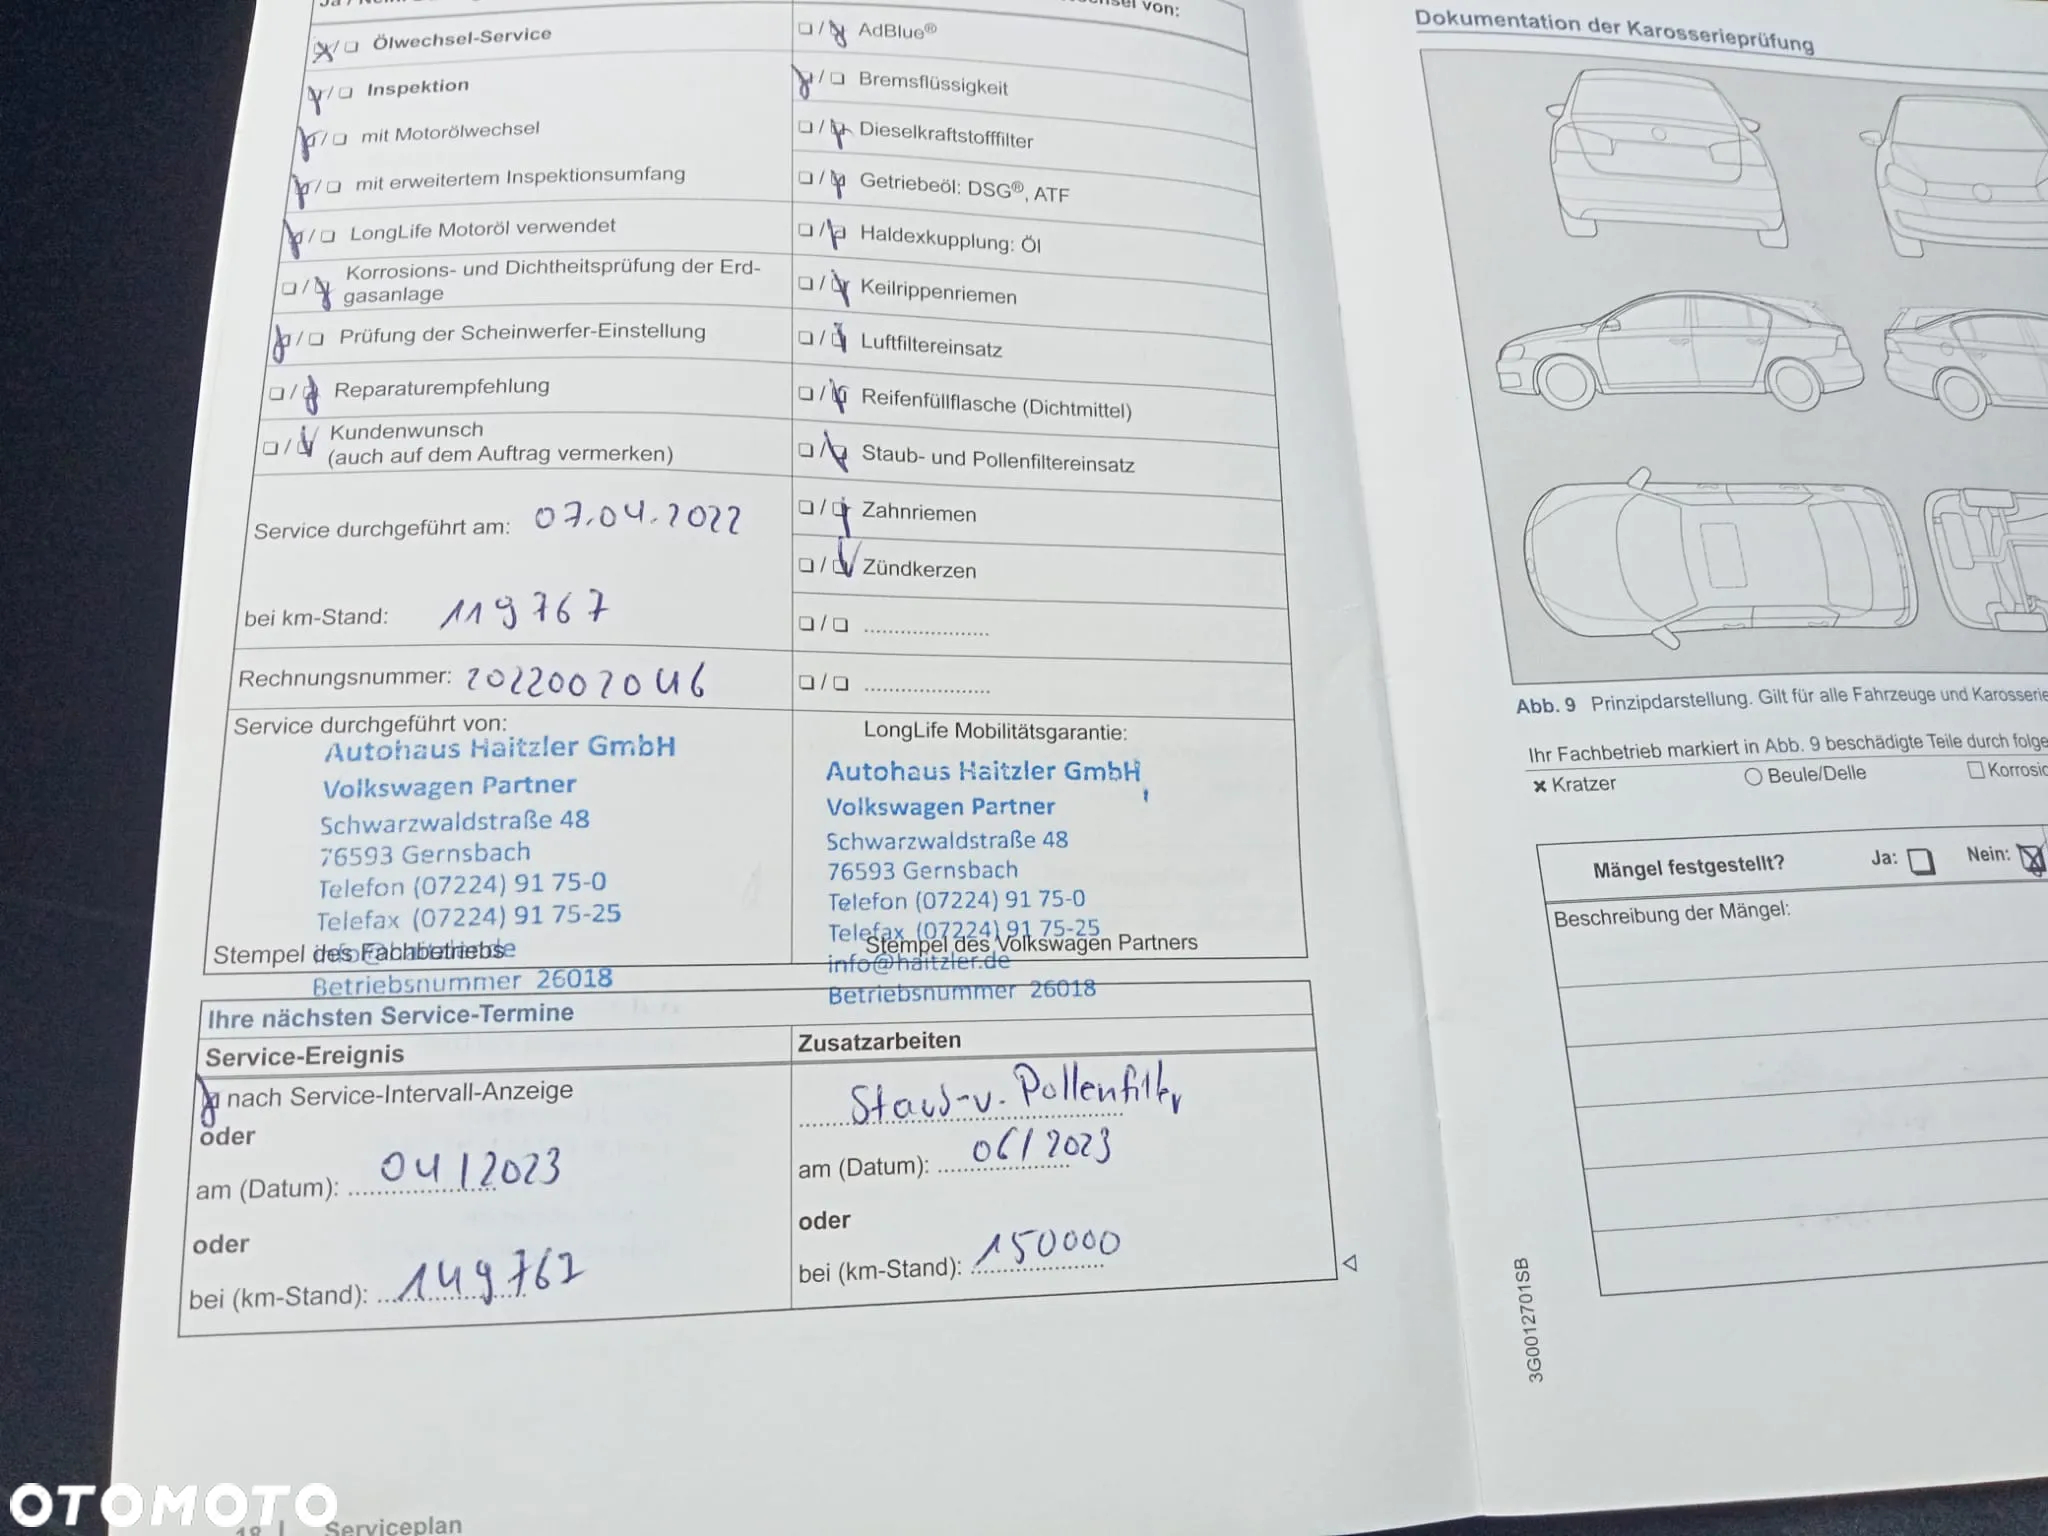 Ölwechsel-Service
Inspektion
mit Motorölwechsel
mit erweitertem Inspektionsumfang
LongLife Motoröl verwendet
Korrosions- und Dichtheitsprüfung der Erd-
gasanlage
Prüfung der Scheinwerfer-Einstellung
Reparaturempfehlung
Kundenwunsch
(auch auf dem Auftrag vermerken)
Service durchgeführt am: 07.04.2022
bei km-Stand: 119767
Rechnungsnummer: 2022002046
von:
AdBlue®
Bremsflüssigkeit
Dieselkraftstofffilter
Getriebeöl: DSG®, ATF
Haldexkupplung: Öl
Keilrippenriemen
Luftfiltereinsatz
Reifenfüllflasche (Dichtmittel)
Staub- und Pollenfiltereinsatz
Zahnriemen
Zündkerzen
Service durchgeführt von:
Autohaus Haitzler GmbH
Volkswagen Partner
Schwarzwaldstraße 48
76593 Gernsbach
Telefon (07224) 91 75-0
Telefax (07224) 91 75-25
Stempel des Fachbetriebs
Betriebsnummer 26018
LongLife Mobilitätsgarantie:
Autohaus Haitzler GmbH
Volkswagen Partner
Schwarzwaldstraße 48
76593 Gernsbach
Telefon (07224) 91 75-0
Telefax (07224) 91 75-25
Stempel des Volkswagen Partners
info@haitzler.de
Betriebsnummer 26018
Ihre nächsten Service-Termine
Service-Ereignis
nach Service-Intervall-Anzeige
oder
am (Datum): 04/2023
oder
bei (km-Stand): 149767
Zusatzarbeiten
Staub-u. Pollenfilter
am (Datum): 06/2023
oder
bei (km-Stand): 150000
18 | Serviceplan
Dokumentation der Karosserieprüfung
Abb. 9 Prinzipdarstellung. Gilt für alle Fahrzeuge und Karosserie
Ihr Fachbetrieb markiert in Abb. 9 beschädigte Teile durch folge
Kratzer Beule/Delle Korrosio
Mängel festgestellt? Ja: Nein:
Beschreibung der Mängel:
3G0012701SB
OTOMOTO